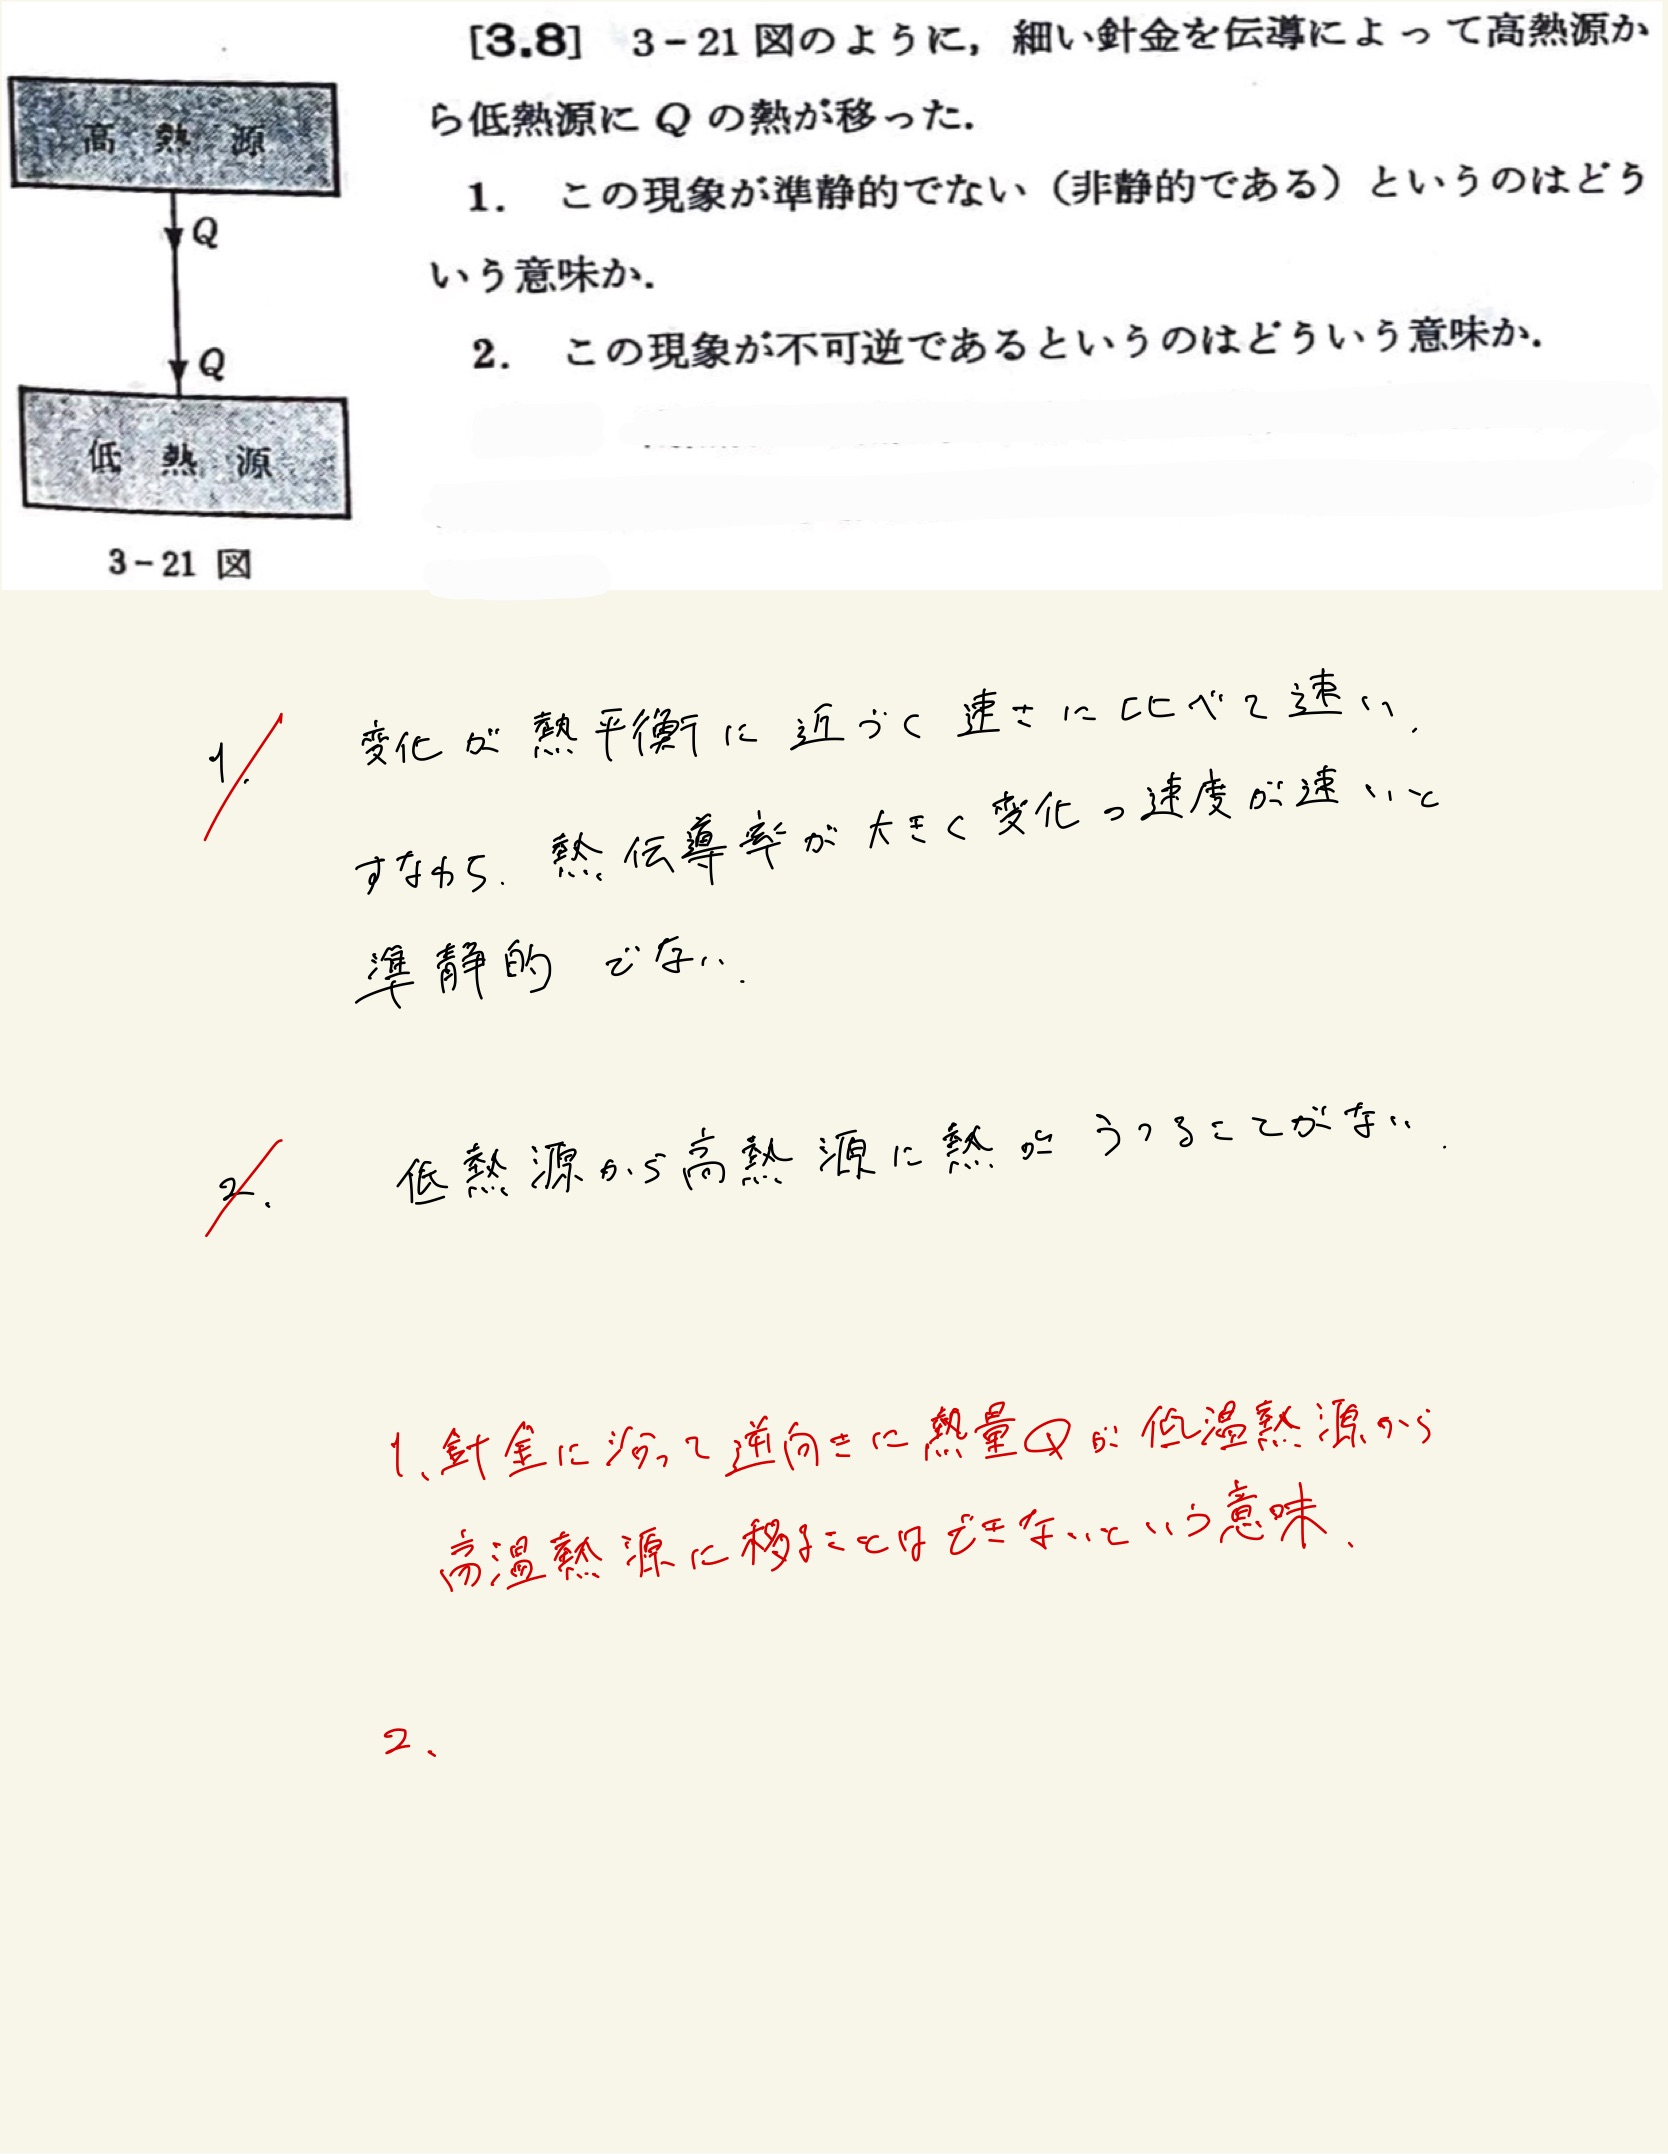 [3.8] 3-21 図のように，細い針金を伝導によって高熱源か
ら低熱源に Q の熱が移った．
1. この現象が準静的でない（非静的である）というのはどう
いう意味か．
2. この現象が不可逆であるというのはどういう意味か．
高熱源
Q
Q
低熱源
3-21 図
1. 変化が熱平衡に近づく速さに比べて速い．
すなわち．熱伝導率が大きく変化の速度が速いと
準静的でない．
2. 低熱源から高熱源に熱がうつることがない．
1、針金に沿って逆向きに熱量Qが低温熱源から
高温熱源に移ることはできないという意味、
2、